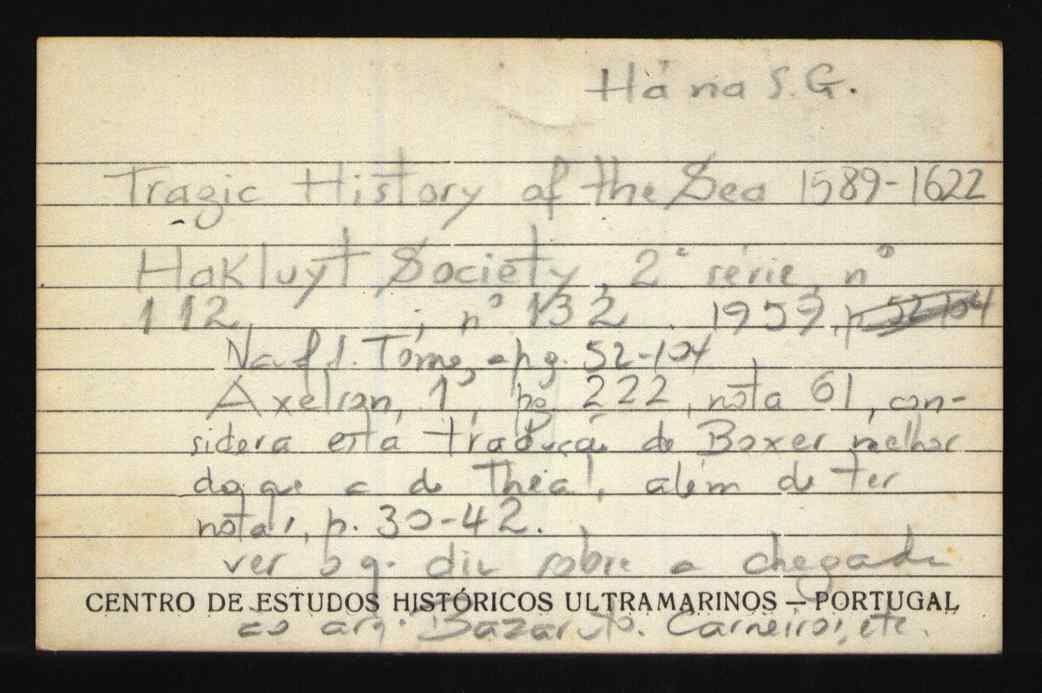 Há na S.G.
Tragic History of the Sea 1589-1622
Hakluyt Society, 2ª série, nº
112, ; nº 132 . 1959, p. 52-104
Na f S. Tomé, a pg. 52-104
Axelson, 1º, pg 222, nota 61, con-
sidera esta tradução de Boxer melhor
do que a de Theal, além de ter
notas, p. 30-42.
ver o q. diz sobre a chegada
CENTRO DE ESTUDOS HISTÓRICOS ULTRAMARINOS — PORTUGAL
ao arq. Bazaruto. Carneiros, etc.